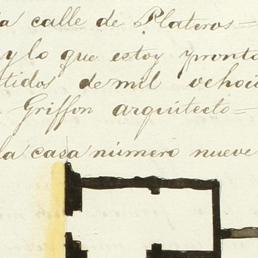 a calle de Plateros=
y lo que estoy pronto
tidos de mil ochoci
Griffon arquitecto=
la casa número nueve